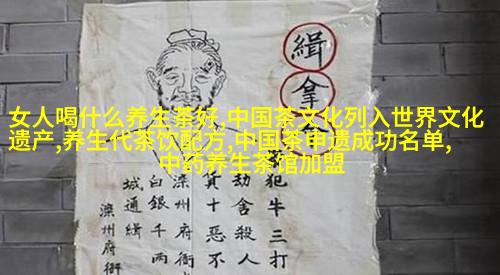 女人喝什么养生茶好,中国茶文化列入世界文化
遗产,养生代茶饮配方,中国茶申遗成功名单,
中药养生茶馆加盟
緝拿
犯牛三打
劫舍殺人
十惡不
滦州府衙
白銀千两
城通緝
滦州府衙